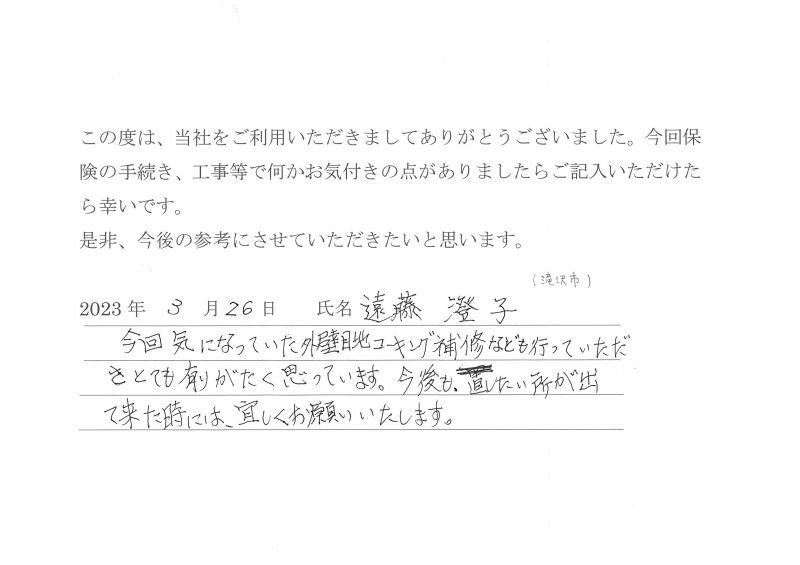 この度は、当社をご利用いただきましてありがとうございました。今回保
険の手続き、工事等で何かお気付きの点がありましたらご記入いただけた
ら幸いです。
是非、今後の参考にさせていただきたいと思います。
(滝沢市)
2023年 3 月26日 氏名 遠藤 澄子
今回気になっていた外壁目地コーキング補修なども行っていただ
きとても有りがたく思っています。今後も、直したい所が出
て来た時には、宜しくお願いいたします。